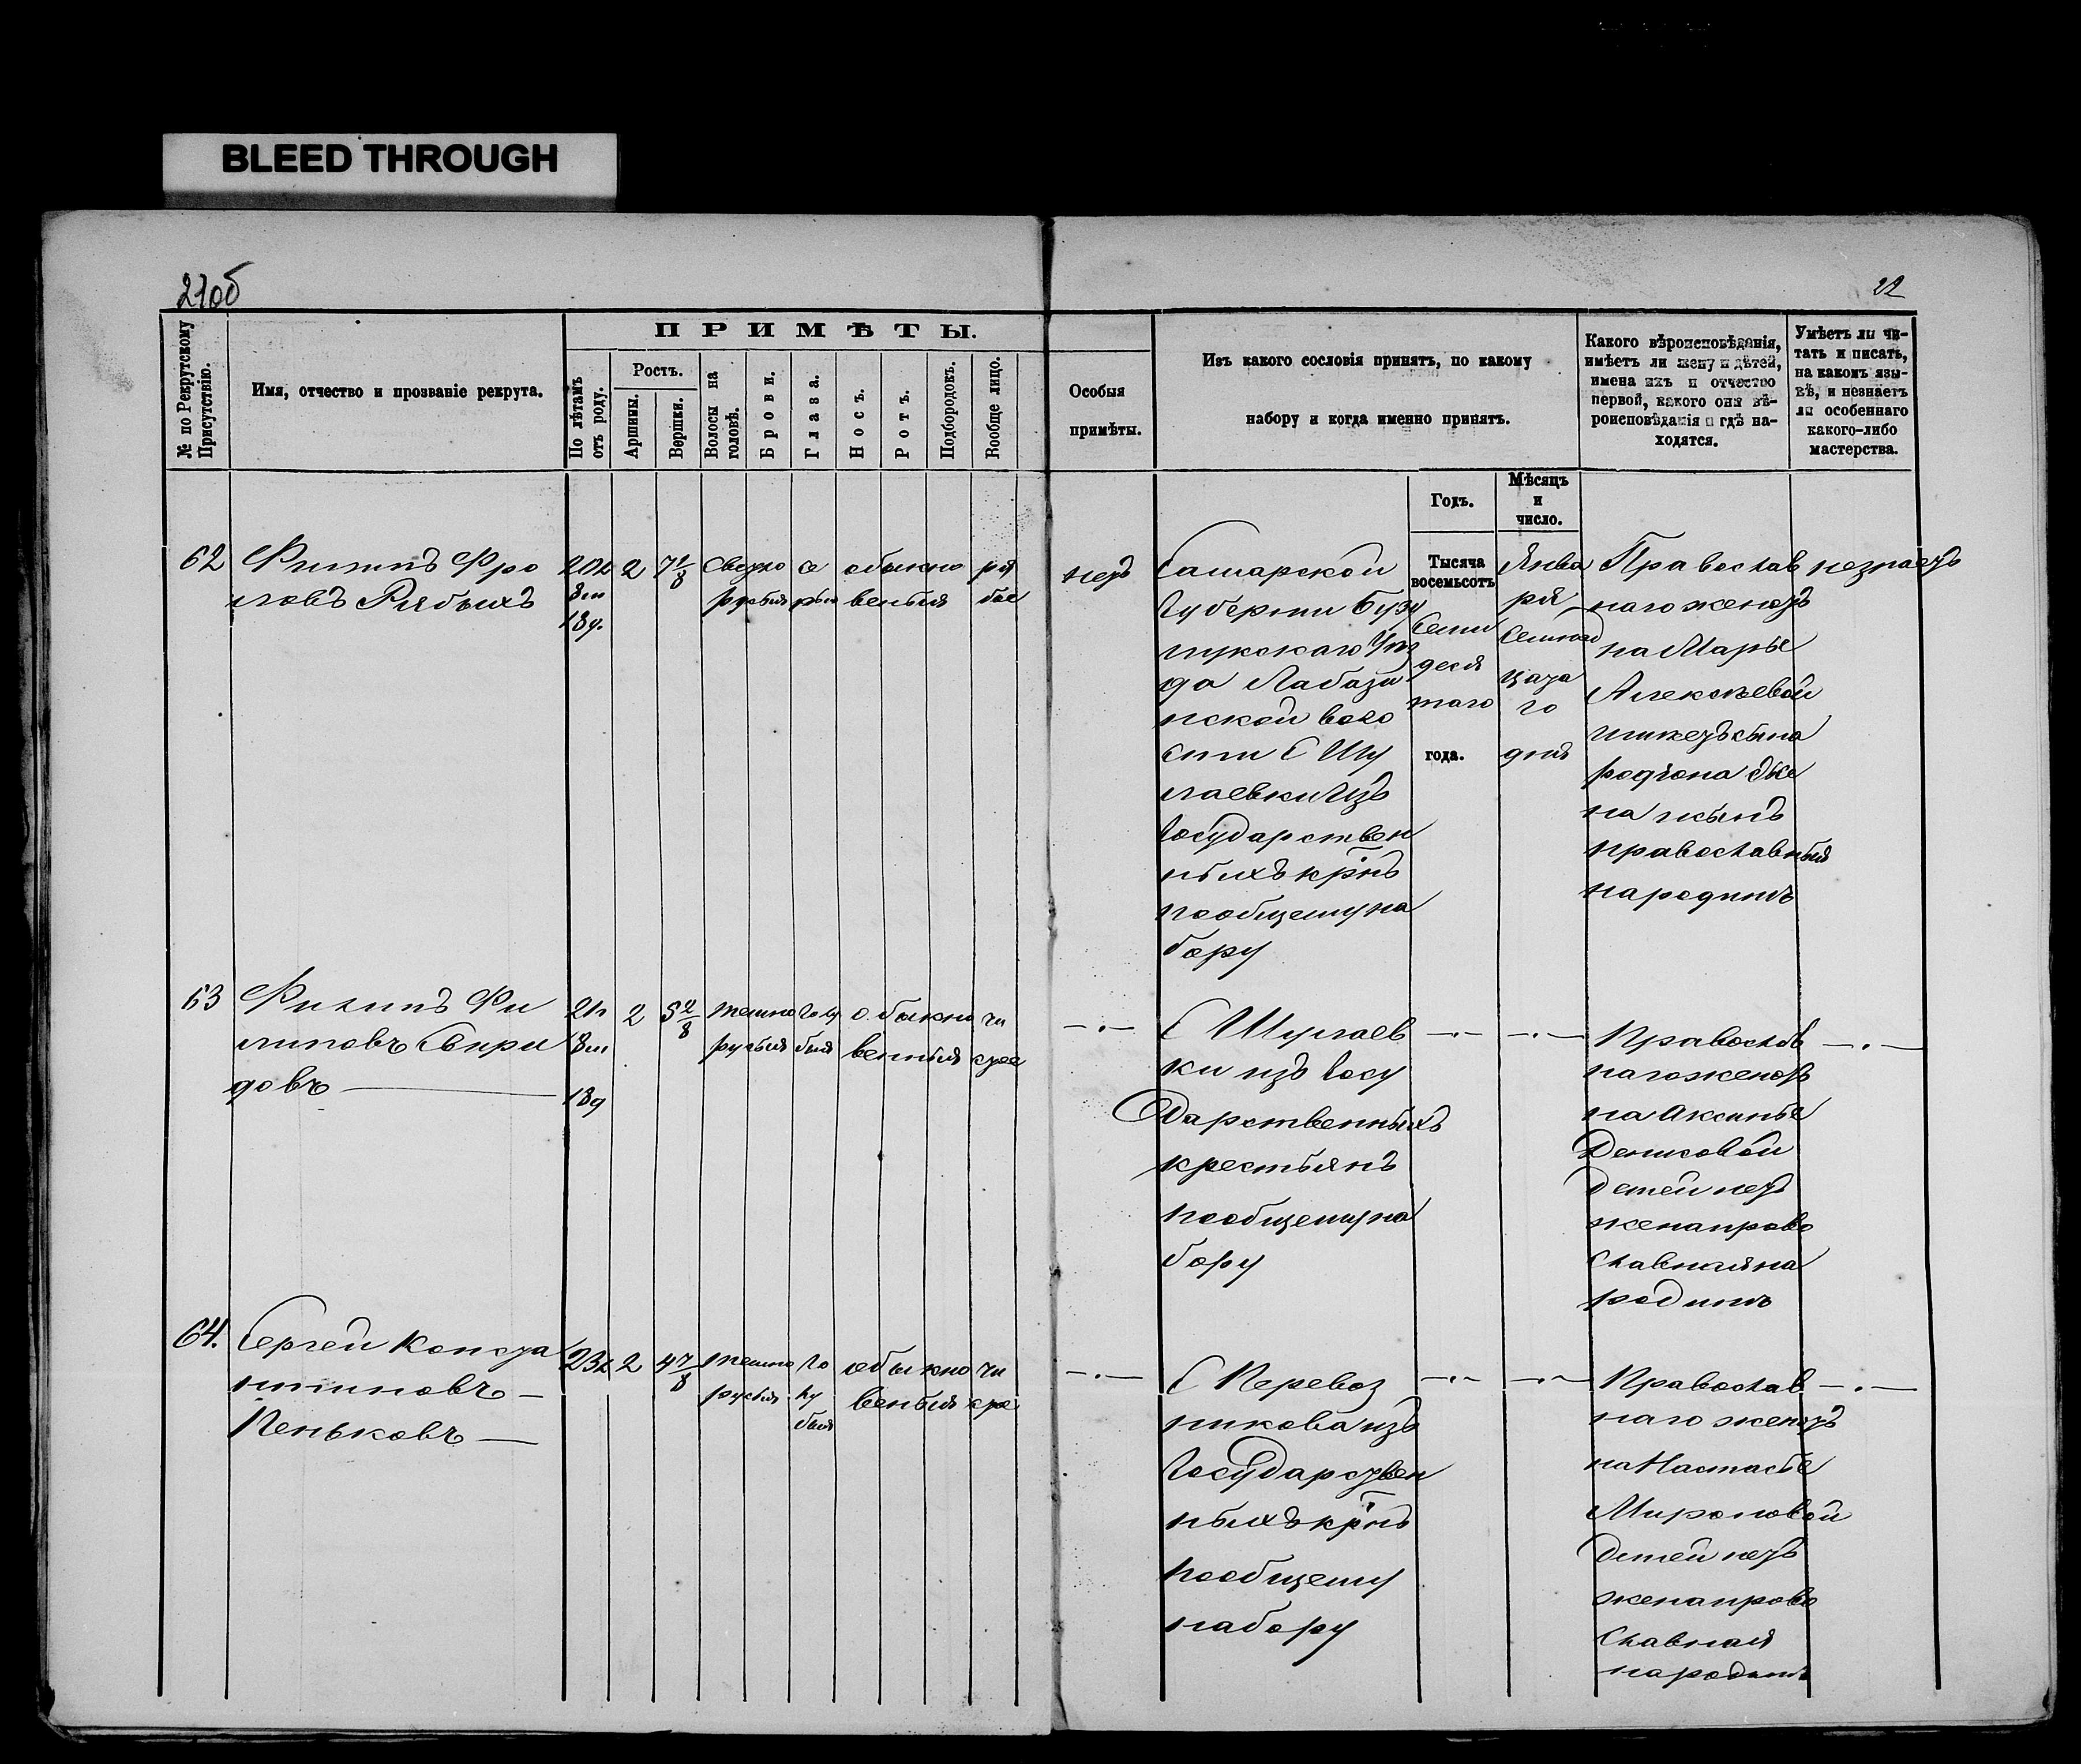 BLEED THROUGH
21об
22
№ по Рекрутскому Присутствію.
Имя, отчество и прозваніе рекрута.
ПРИМѢТЫ.
По лѣтамъ отъ роду.
Ростъ.
Аршины.
Вершки.
Волосы на головѣ.
Брови.
Глаза.
Носъ.
Ротъ.
Подбородокъ.
Вообще лицо.
Особыя
примѣты.
Изъ какого сословія принятъ, по какому
набору и когда именно принятъ.
Какого вѣроисповѣданія,
имѣетъ ли жену и дѣтей,
имена ихъ и отчество
первой, какого они вѣ-
роисповѣданія и гдѣ на-
ходятся.
Умѣетъ ли чи-
тать и писать,
на какомъ язы-
кѣ, и незнаетъ
ли особеннаго
какого-либо
мастерства.
Годъ.
Мѣсяцъ
и
число.
62
Филипъ Фро
ловъ Рябыхъ
20л
8м
18д.
2
7 1/8
Светло
русыя
се
рыя
обыкно
веныя
ря
бое
нетъ
Самарской
Губерніи Бузу
лукскаго Уѣз
да Лабази
нской воло
сти С Шу
лаевки Изъ
Государствен
ныхъ крнъ
пообщему на
бору
Тысяча
восемьсотъ
Семи
деся
таго
года.
Янва
ря
Семнад
цата
го
дня
Православ
наго женатъ
на Марье
Алексѣевой
имѣетъ сына
родіона Же
на и сынъ
православныя
на родинѣ
незнаетъ
63
Филипъ Фи
липовъ Свири
довъ —
21л
8м
18д
2
5 2/8
темно
русыя
голу
быя
обыкно
венныя
чи
стое
—·—
С Шулаев
ки изъ Госу
Дарственныхъ
крестьянъ
пообщему на
бору
—·—
—·—
Православ
наго женатъ
на Аксинье
Денисовой
Детей нетъ
жена право
славная на
родинѣ
—·—
64.
Сергей Конста
нтиновъ —
Пеньковъ —
23л
2
4 7/8
темно
русыя
го
лу
быя
обыкно
веныя
чи
стое
—·—
С Перевоз
никова изъ
Государствен
ныхъ крнъ
пообщему
набору
—·—
—·—
Православ
наго женатъ
на Настасье
Мироновой
Детей нетъ
жена право
славная
на родинѣ
—·—